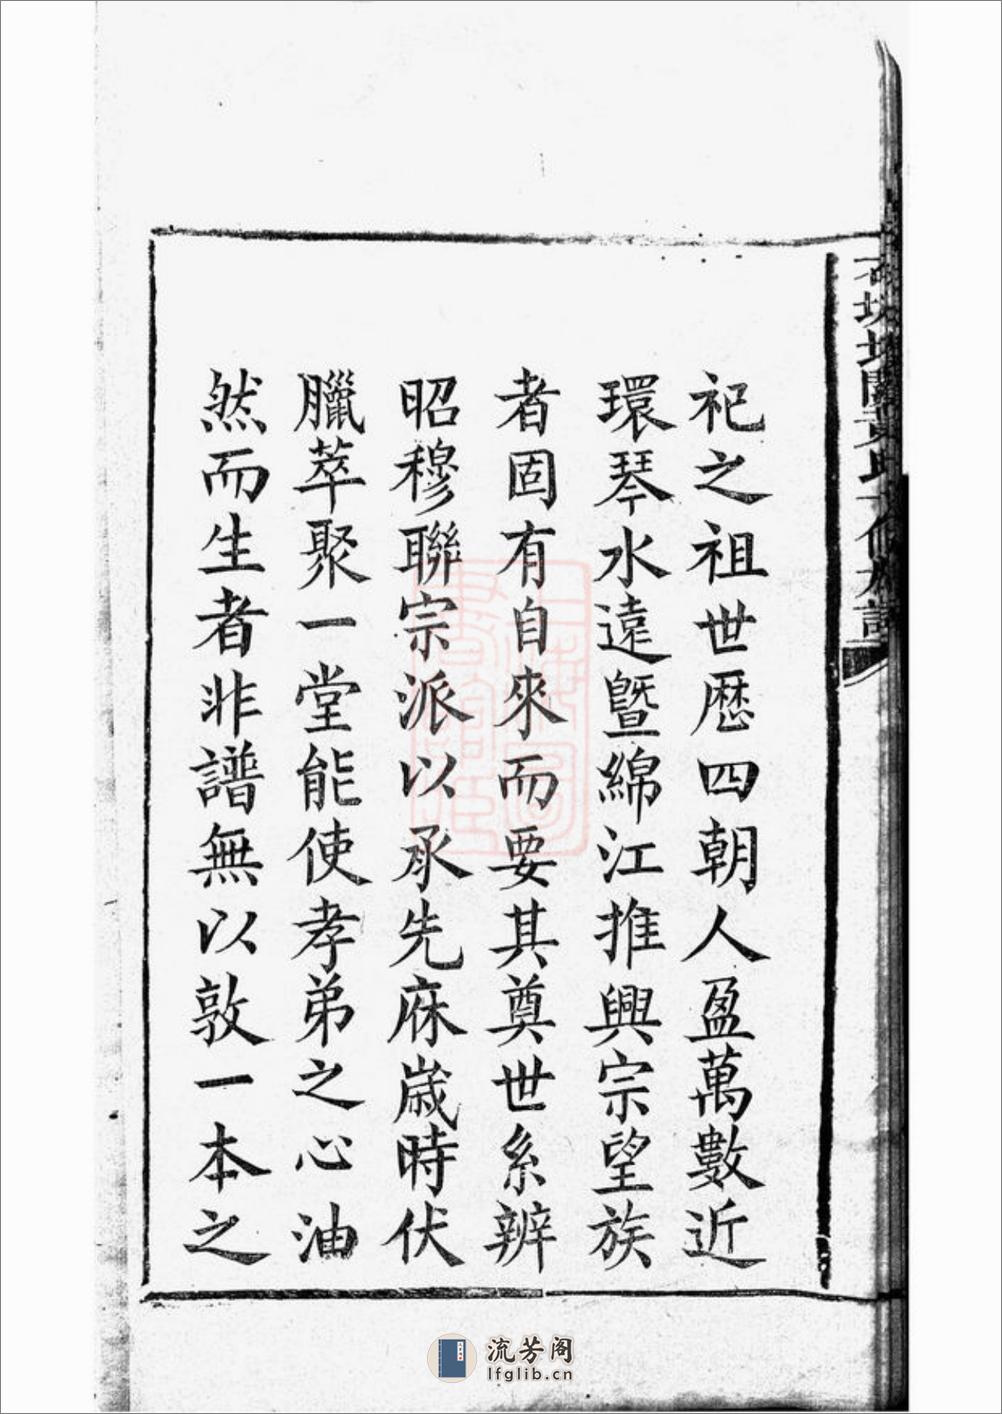 祀之祖世歷四朝人盈萬數近
環琴水遠曁綿江推興宗望族
者固有自來而要其奠世系辨
昭穆聯宗派以承先庥歲時伏
臘萃聚一堂能使孝弟之心油
然而生者非譜無以敦一本之
流芳阁
lfglib.cn